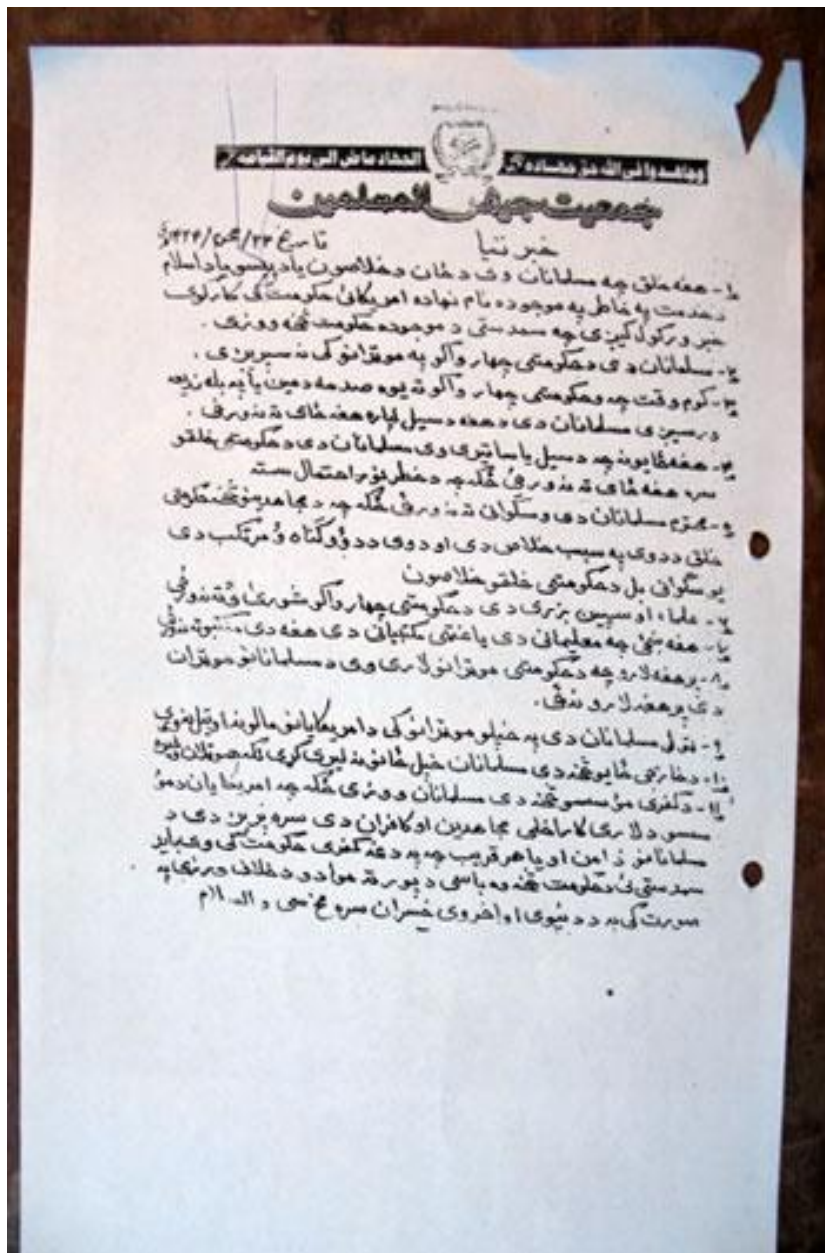 وجاهدوا في الله حق جهاده الجهاد ماض الى يوم القيامة
جمعیت جیش المسلمین
خبرتیا تاریخ ۲۳/ /۱۴۲۴
۱- هغه خلق چه مسلمانان وی د ځان د خلاصون یا د پیسو یا د اسلام
د خدمت په خاطر په موجوده نام نهاده امریکائی حکومت کی کار کوی
خبر ورکول کیږی چه سمدستی د موجوده حکومت څخه ووزی .
۲- مسلمانان دی د حکومتی چهار واکو په موټرانو کی نه سپریږی .
۳- کوم وقت چه و حکومتی چهار واکو ته یوه صدمه د مین یا په بله ذریعه
ورسیږی مسلمانان دی د هغه د سیل لپاره هغه ځای ته نه ورځی .
۴- هغه ځایونه چه د سیل یا ساتیری وی مسلمانان دی د حکومتی خلقو
سره هغه ځای ته نه ورځی ځکه چه د خطر ډیر احتمال سته
۵- محترم مسلمانان دی و سکوانی ته نه ورځی ځکه چه د مجاهدینو څخه حکومتی
خلق د دوی په سبب خلاص دی او دوی د دوو گناه ؤ مرتکب دی
یو سکوانی بل د حکومتی خلقو خلاصون
۶- علماء او سپین ږیری دی د حکومتی چهار واکو شوری ګانو ته نه ورځی
۷- هغه ښځی چه معلیمانی دی یا غټی مکتبیانی دی هغه دی مکتبو ته نه ورځی
۸- پر هغه لارو چه د حکومتی موټرانو لاری وی د مسلمانانو موټران
دی پر هغه لارو نه ځی .
۹- ټولی مسلمانان دی په خپلو موټرانو کی د امریکایانو مالونه او تیل نه وړی
۱۰- د خارجی ځایو څخه دی مسلمانان خپل ځانونه لیری کړی لکه هوټلان وغیره
۱۱- د کفری مؤسسو څخه دی مسلمانان ووزی ځکه چه امریکایان د مؤ
سسو د لاری کار اخلی مجاهدین او کافران دی سره بریږدی د
مسلمانانو ژامن او یا هر قریب چه په دغه کفری حکومت کی وی باید
سمدستی ئی د حکومت څخه وه باسی د پورته موادو د خلاف ورزی په
صورت کی به د دنیوی او اخروی خسران سره مخ سی و السلام